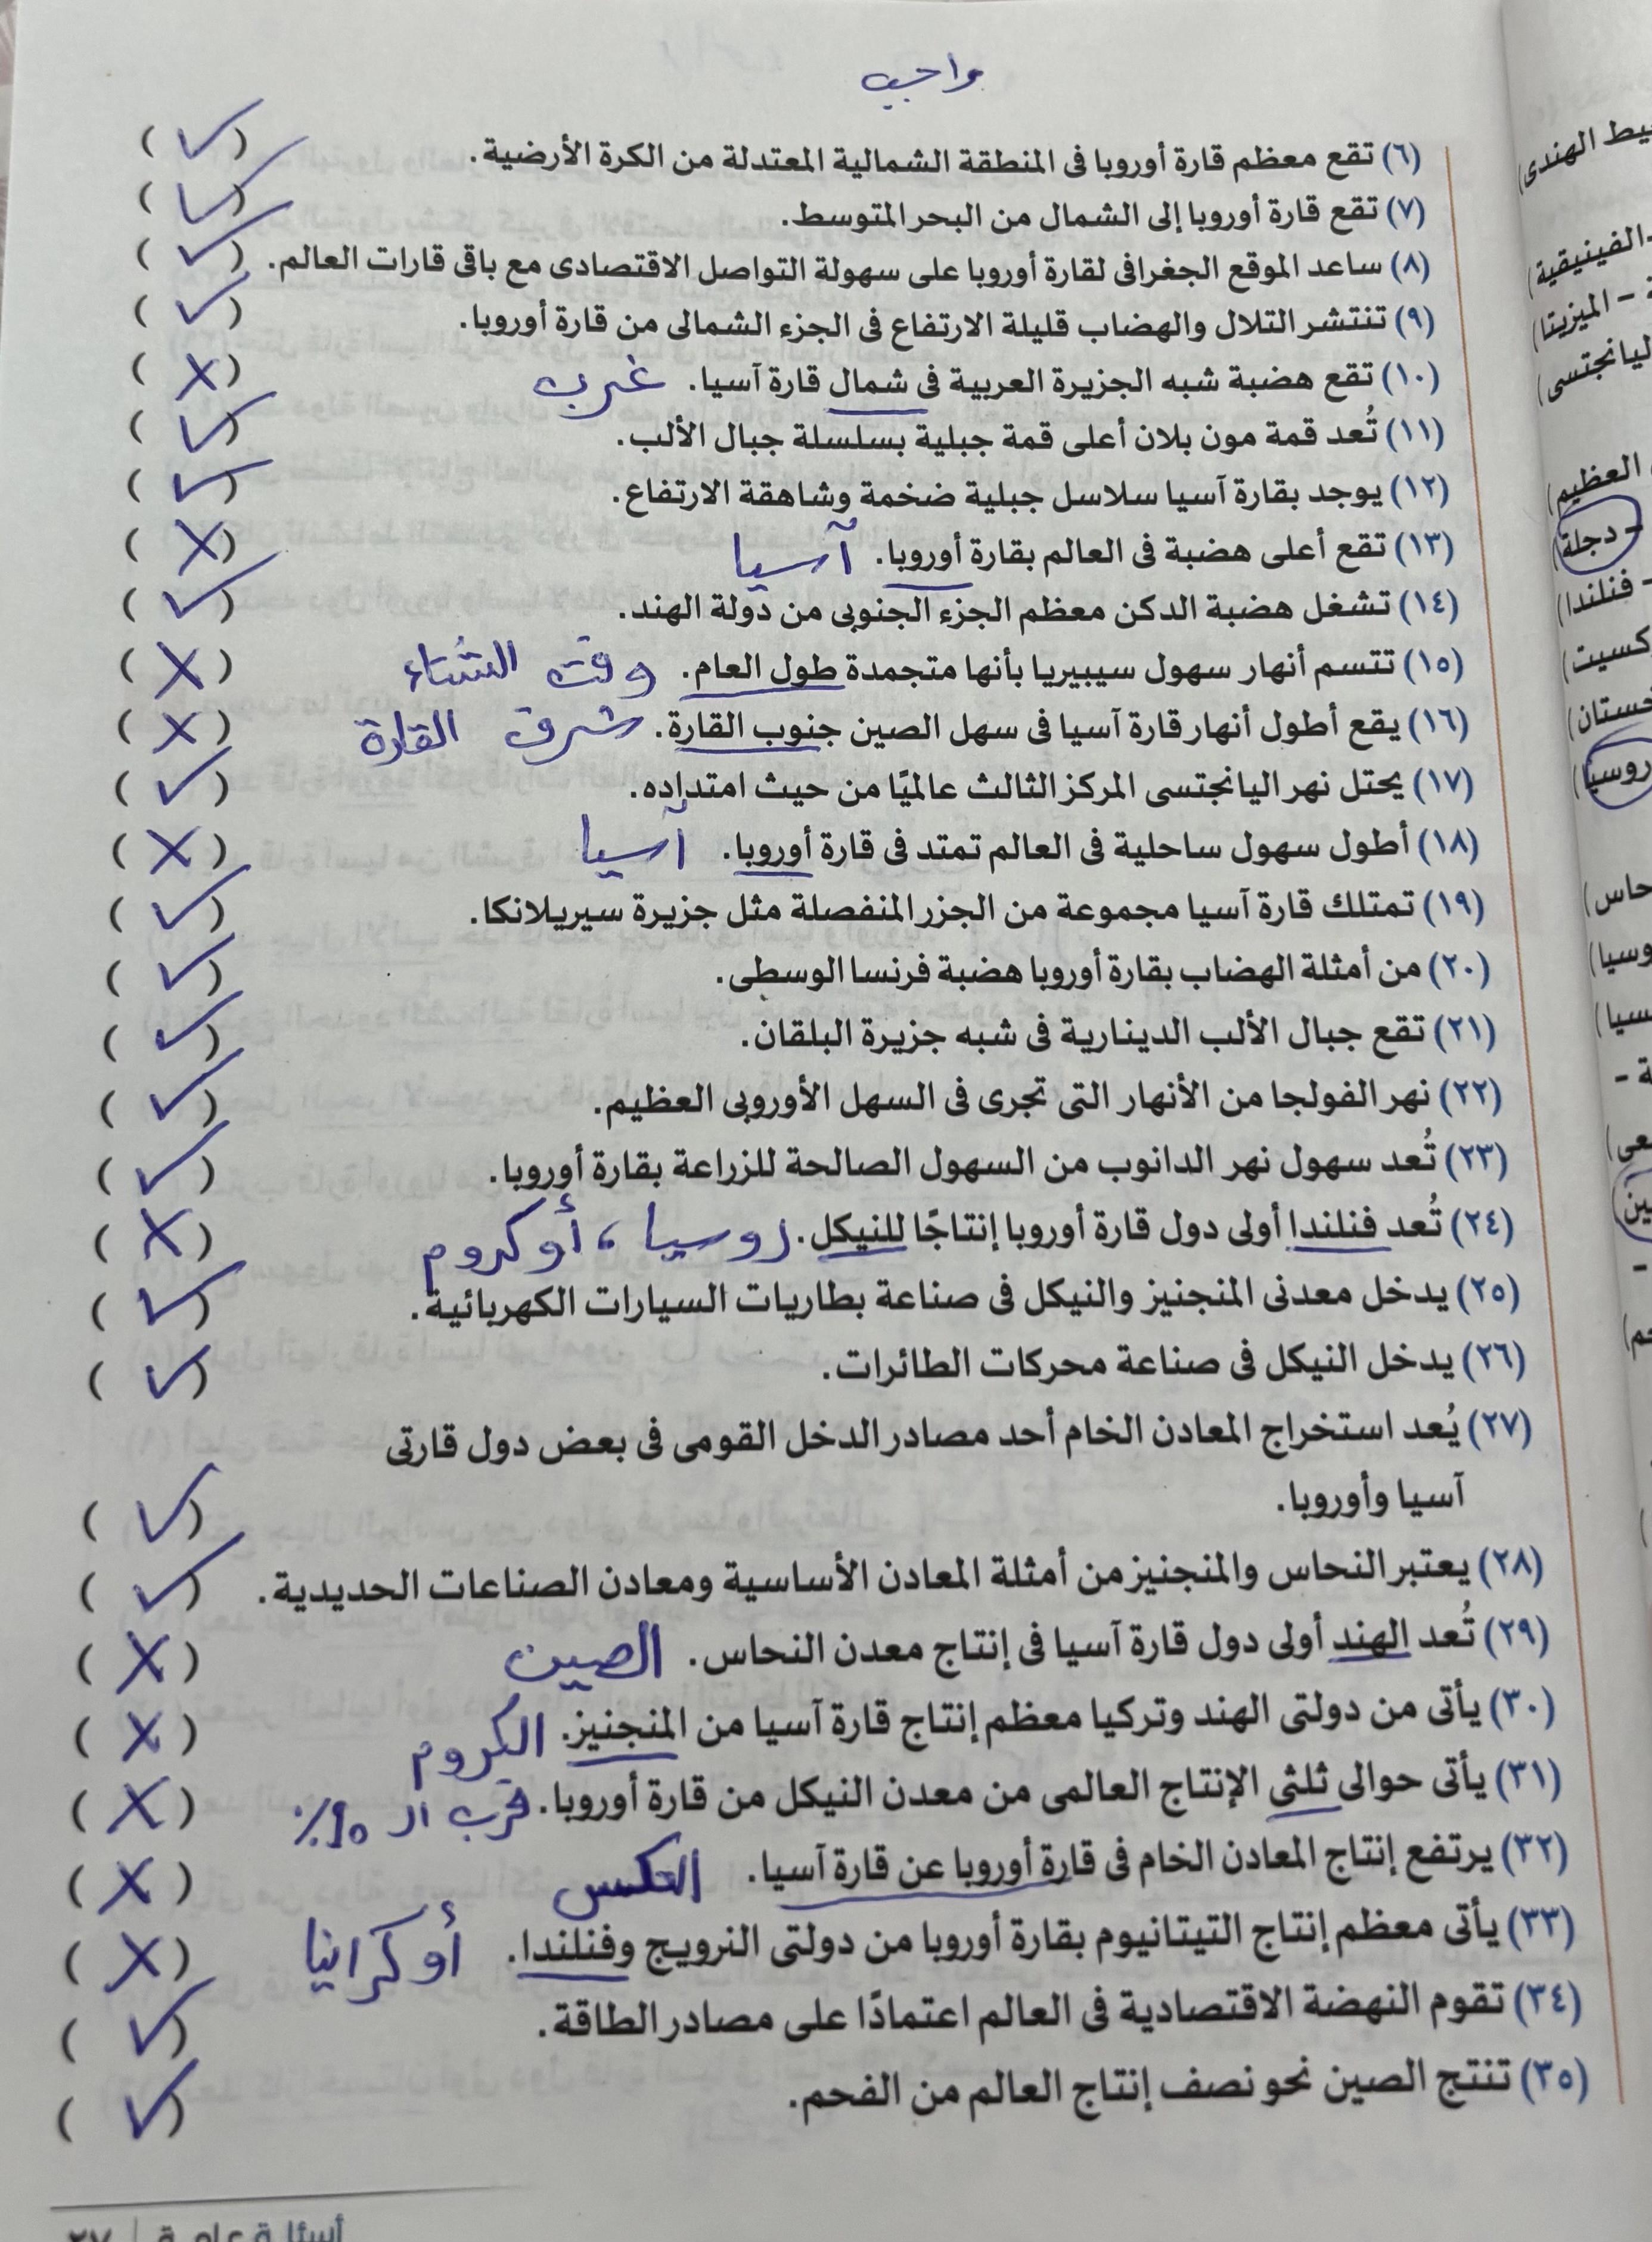 واجب
(٦) تقع معظم قارة أوروبا فى المنطقة الشمالية المعتدلة من الكرة الأرضية. (✓)
(٧) تقع قارة أوروبا إلى الشمال من البحر المتوسط. (✓)
(٨) ساعد الموقع الجغرافى لقارة أوروبا على سهولة التواصل الاقتصادى مع باقى قارات العالم. (✓)
(٩) تنتشر التلال والهضاب قليلة الارتفاع فى الجزء الشمالى من قارة أوروبا. (✓)
(١٠) تقع هضبة شبه الجزيرة العربية فى شمال قارة آسيا. غرب (✗)
(١١) تُعد قمة مون بلان أعلى قمة جبلية بسلسلة جبال الألب. (✓)
(١٢) يوجد بقارة آسيا سلاسل جبلية ضخمة وشاهقة الارتفاع. (✓)
(١٣) تقع أعلى هضبة فى العالم بقارة أوروبا. آسيا (✗)
(١٤) تشغل هضبة الدكن معظم الجزء الجنوبى من دولة الهند. (✓)
(١٥) تتسم أنهار سهول سيبيريا بأنها متجمدة طول العام. وقت الشتاء (✗)
(١٦) يقع أطول أنهار قارة آسيا فى سهل الصين جنوب القارة. شرق القارة (✗)
(١٧) يحتل نهر اليانجتسى المركز الثالث عالميًا من حيث امتداده. (✓)
(١٨) أطول سهول ساحلية فى العالم تمتد فى قارة أوروبا. آسيا (✗)
(١٩) تمتلك قارة آسيا مجموعة من الجزر المنفصلة مثل جزيرة سيريلانكا. (✓)
(٢٠) من أمثلة الهضاب بقارة أوروبا هضبة فرنسا الوسطى. (✓)
(٢١) تقع جبال الألب الدينارية فى شبه جزيرة البلقان. (✓)
(٢٢) نهر الفولجا من الأنهار التى تجرى فى السهل الأوروبى العظيم. (✓)
(٢٣) تُعد سهول نهر الدانوب من السهول الصالحة للزراعة بقارة أوروبا. (✓)
(٢٤) تُعد فنلندا أولى دول قارة أوروبا إنتاجًا للنيكل. روسيا، أو كروم (✗)
(٢٥) يدخل معدنى المنجنيز والنيكل فى صناعة بطاريات السيارات الكهربائية. (✓)
(٢٦) يدخل النيكل فى صناعة محركات الطائرات. (✓)
(٢٧) يُعد استخراج المعادن الخام أحد مصادر الدخل القومى فى بعض دول قارتى
آسيا وأوروبا. (✓)
(٢٨) يعتبر النحاس والمنجنيز من أمثلة المعادن الأساسية ومعادن الصناعات الحديدية. (✓)
(٢٩) تُعد الهند أولى دول قارة آسيا فى إنتاج معدن النحاس. الصين (✗)
(٣٠) يأتى من دولتى الهند وتركيا معظم إنتاج قارة آسيا من المنجنيز. الكروم (✗)
(٣١) يأتى حوالى ثلثى الإنتاج العالمى من معدن النيكل من قارة أوروبا. قرب الـ ١٠٪ (✗)
(٣٢) يرتفع إنتاج المعادن الخام فى قارة أوروبا عن قارة آسيا. العكس (✗)
(٣٣) يأتى معظم إنتاج التيتانيوم بقارة أوروبا من دولتى النرويج وفنلندا. أوكرانيا (✗)
(٣٤) تقوم النهضة الاقتصادية فى العالم اعتمادًا على مصادر الطاقة. (✓)
(٣٥) تنتج الصين نحو نصف إنتاج العالم من الفحم. (✓)
أسئلة عامة | ٢٧
يط الهندى)
الفينيقية)
- الميزيتا)
ليانجتسى)
العظيم)
- دجلة)
- فنلندا)
كسيت)
روسيا)
حاس)